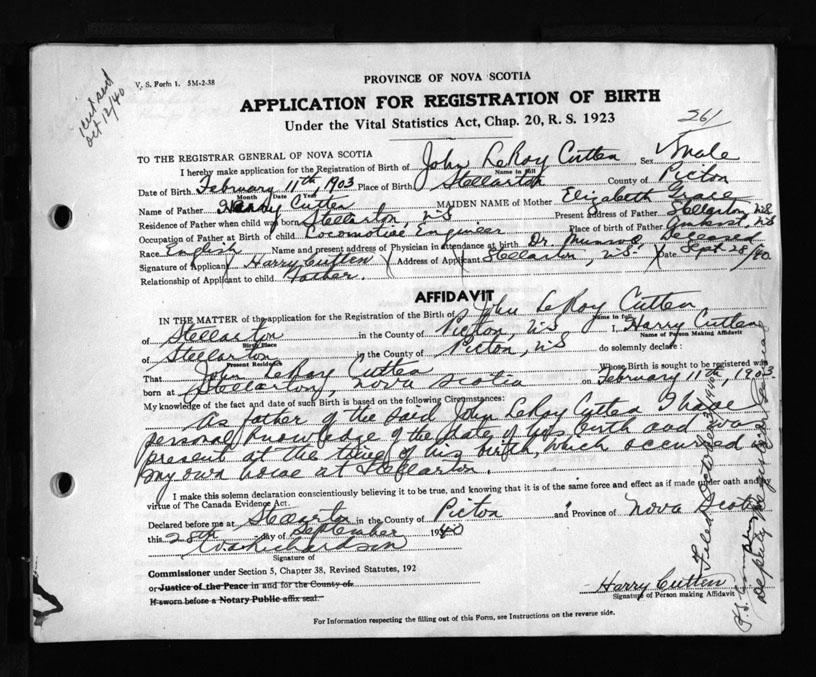 V. S. Form 1. 5M-2-38
Oct 12/40
PROVINCE OF NOVA SCOTIA
APPLICATION FOR REGISTRATION OF BIRTH
Under the Vital Statistics Act, Chap. 20, R. S. 1923
261
TO THE REGISTRAR GENERAL OF NOVA SCOTIA
I hereby make application for the Registration of Birth of John LeRoy Cutten Sex Male
Name in full
Date of Birth February 11th, 1903 Place of Birth Stellarton County of Picton
Month Date Year
Name of Father Harry Cutten MAIDEN NAME of Mother Elizabeth Grace
Residence of Father when child was born Stellarton, N.S Present address of Father Stellarton N.S
Occupation of Father at Birth of child Locomotive Engineer Place of birth of Father Amherst, N.S
Race English Name and present address of Physician in attendance at birth Dr. Munroe deceased
Signature of Applicant Harry Cutten Address of Applicant Stellarton, N.S. Date Sept 28/40
Relationship of Applicant to child Father.
AFFIDAVIT
IN THE MATTER of the application for the Registration of the Birth of John LeRoy Cutten
Name in full
of Stellarton in the County of Picton, N.S I, Harry Cutten
Birth Place Name of Person Making Affidavit
of Stellarton in the County of Picton, N.S do solemnly declare:
Present Residence
That John LeRoy Cutten Whose Birth is sought to be registered was
born at Stellarton, Nova Scotia on February 11th, 1903.
My knowledge of the fact and date of such Birth is based on the following Circumstances:
As father of the said John LeRoy Cutten I have
personal knowledge of the date of his birth and was
present at the time of his birth, which occurred in
my own home at Stellarton.
I make this solemn declaration conscientiously believing it to be true, and knowing that it is of the same force and effect as if made under oath and by
virtue of The Canada Evidence Act.
Declared before me at Stellarton in the County of Picton and Province of Nova Scotia
this 28th day of September 1940
Richardson
Signature of
Commissioner under Section 5, Chapter 38, Revised Statutes, 192
or Justice of the Peace in and for the County of
If sworn before a Notary Public affix seal.
Harry Cutten
Signature of Person making Affidavit
For Information respecting the filling out of this Form, see Instructions on the reverse side.
Filed October 1940
Deputy Registrar General